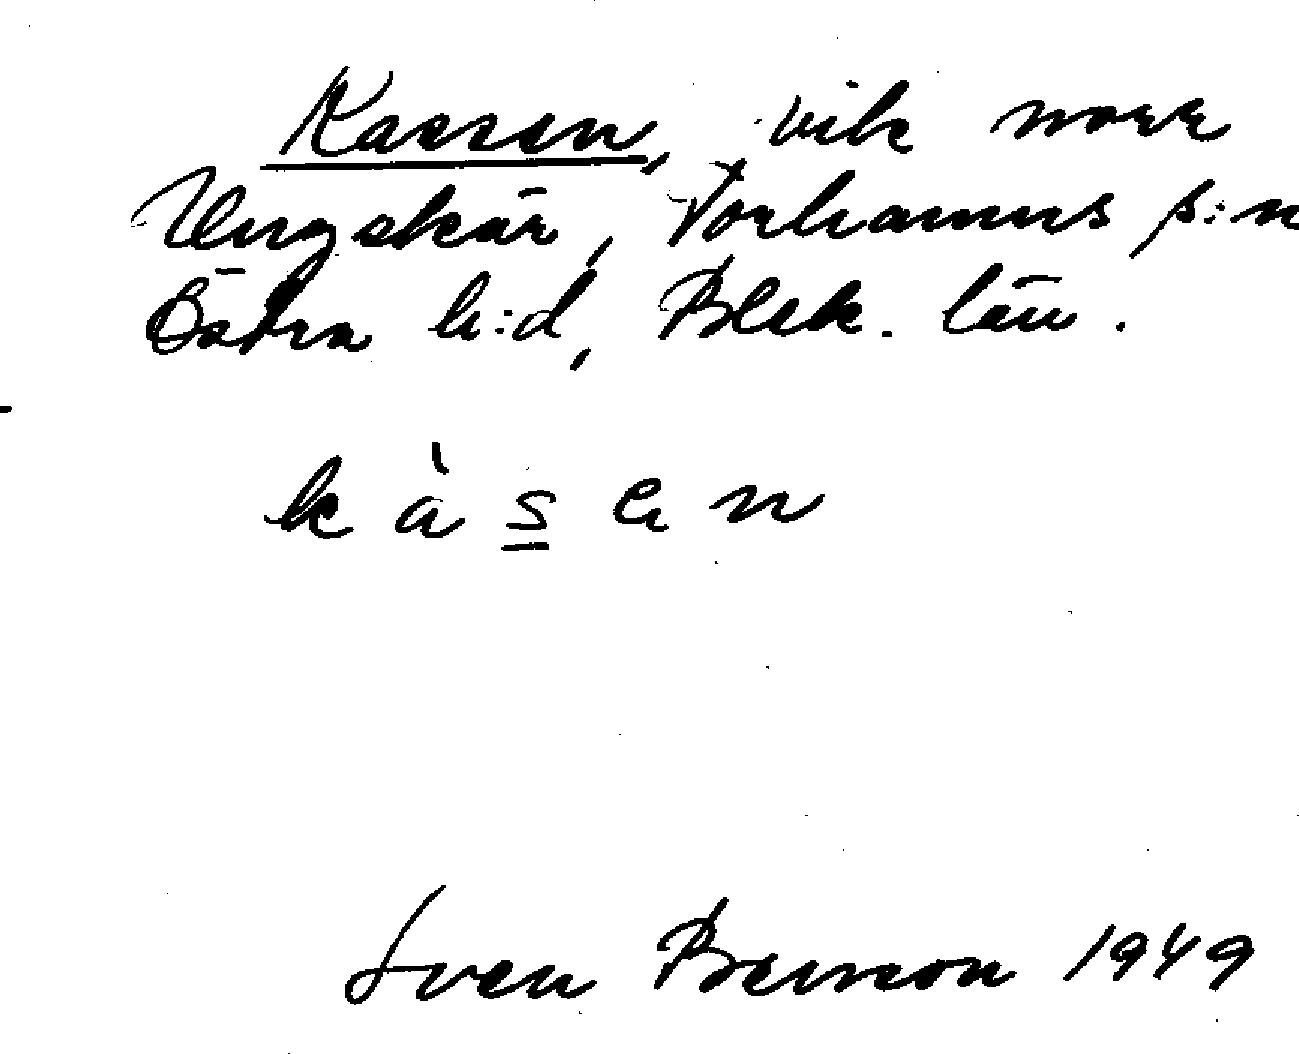 Kassen, vik norr
Ungskär, Torhamns s:n
Östra h:d, Blek. län.
k à s e n
Sven Benson 1949